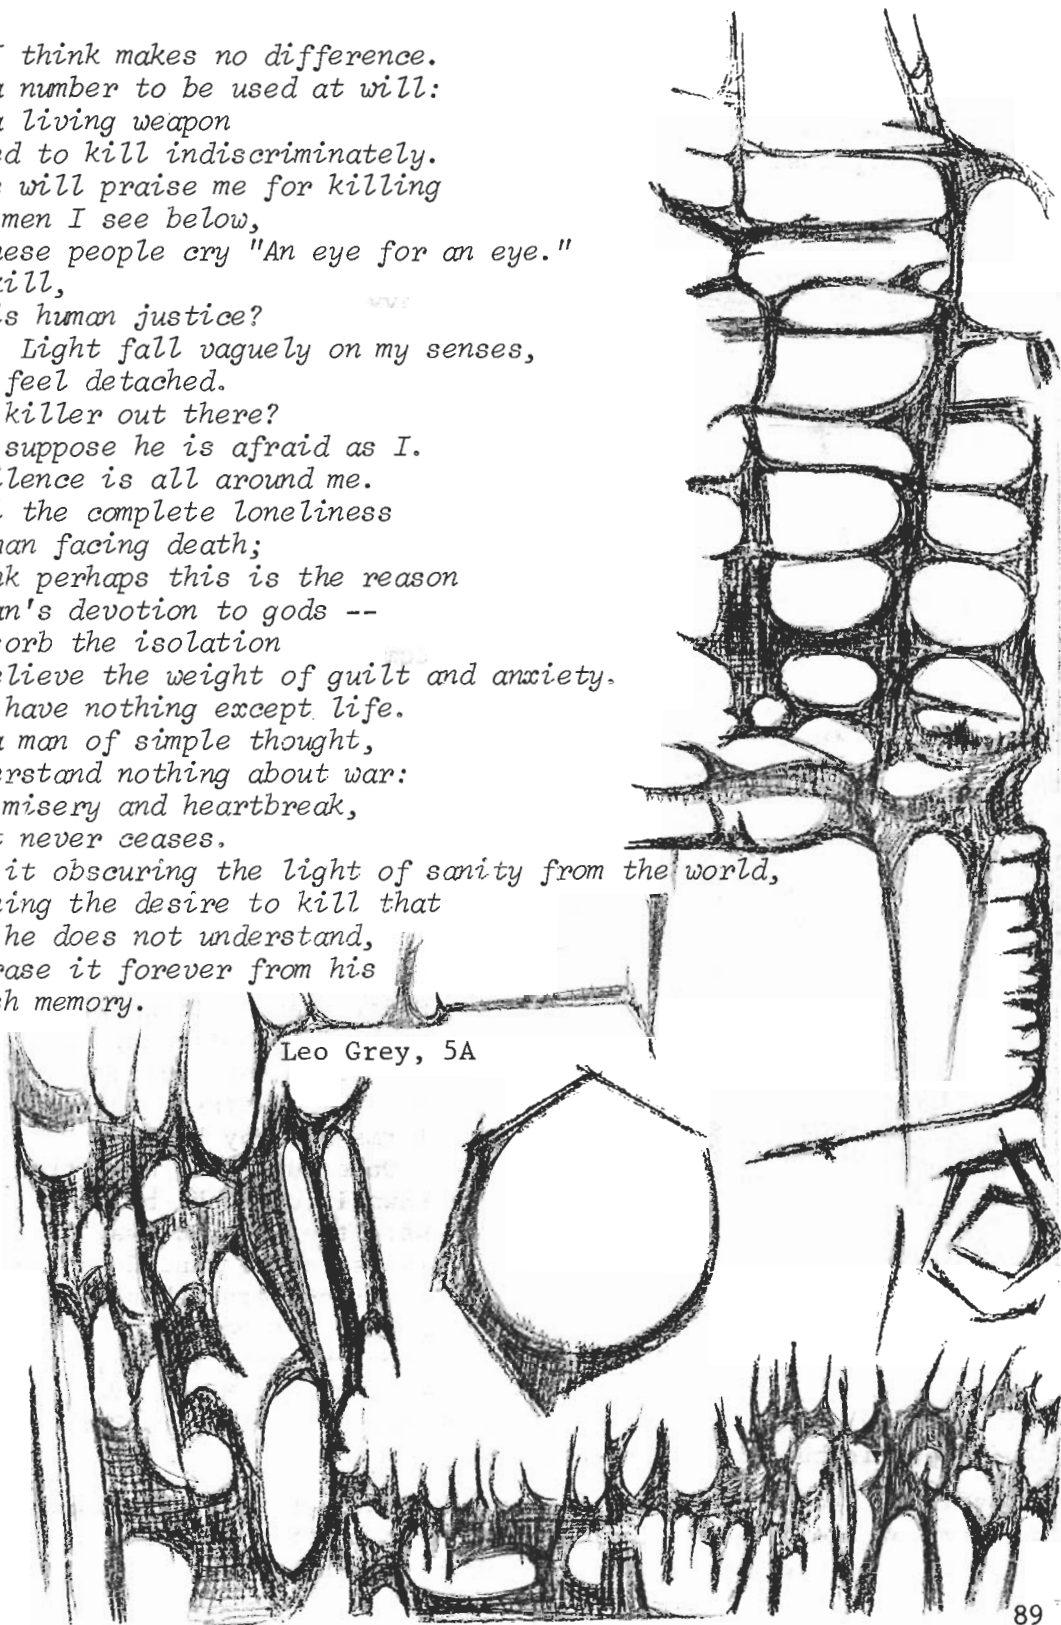 I think makes no difference.
a number to be used at will:
a living weapon
ed to kill indiscriminately.
will praise me for killing
men I see below,
hese people cry "An eye for an eye."
kill,
is human justice?
Light fall vaguely on my senses,
feel detached.
killer out there?
suppose he is afraid as I.
ilence is all around me.
the complete loneliness
man facing death;
nk perhaps this is the reason
an's devotion to gods --
sorb the isolation
elieve the weight of guilt and anxiety.
have nothing except life.
a man of simple thought,
erstand nothing about war:
misery and heartbreak,
t never ceases.
it obscuring the light of sanity from the world,
ning the desire to kill that
he does not understand,
rase it forever from his
sh memory.
Leo Grey, 5A
89